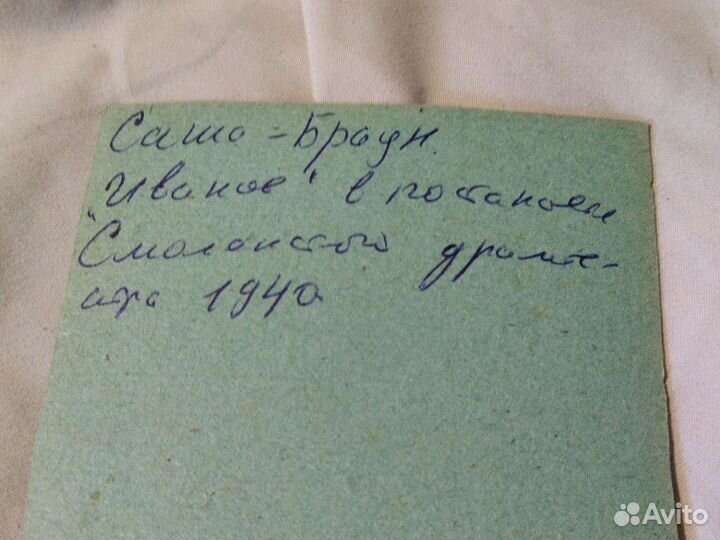 Саша = Браун.
"Иванов" в постановке
Смоленского драмте-
атра 1940
Avito